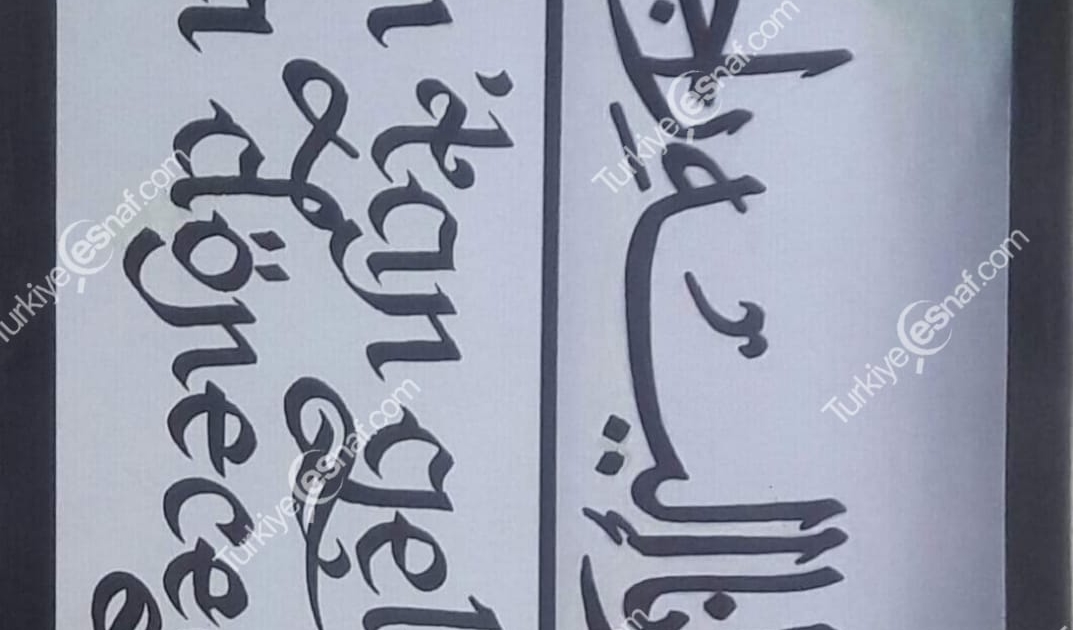 إليه را
tan gel
dönece
TurkiyeEsnaf.com
TurkiyeEsnaf.com
TurkiyeEsnaf.com
TurkiyeEsnaf.com